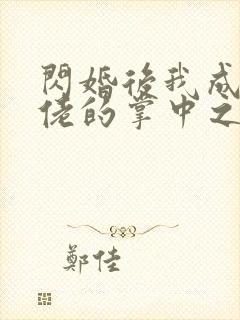 閃婚後我成
佬的掌中之
鄭佳